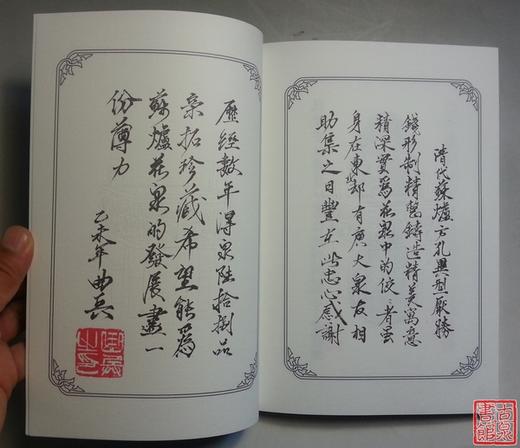 清代蘇爐方孔異型厭勝
錢形制精緻鑄造精美寓意
精深實為花泉中的佼々者虽
身在東北却有廣大泉友相
助集之日豐在此忠心感謝
歷經數年得泉陸拾捌品
亲拓珍藏希望能為
蘇爐花泉的發展盡一
份薄力
乙未年曲兵
古泉
書館